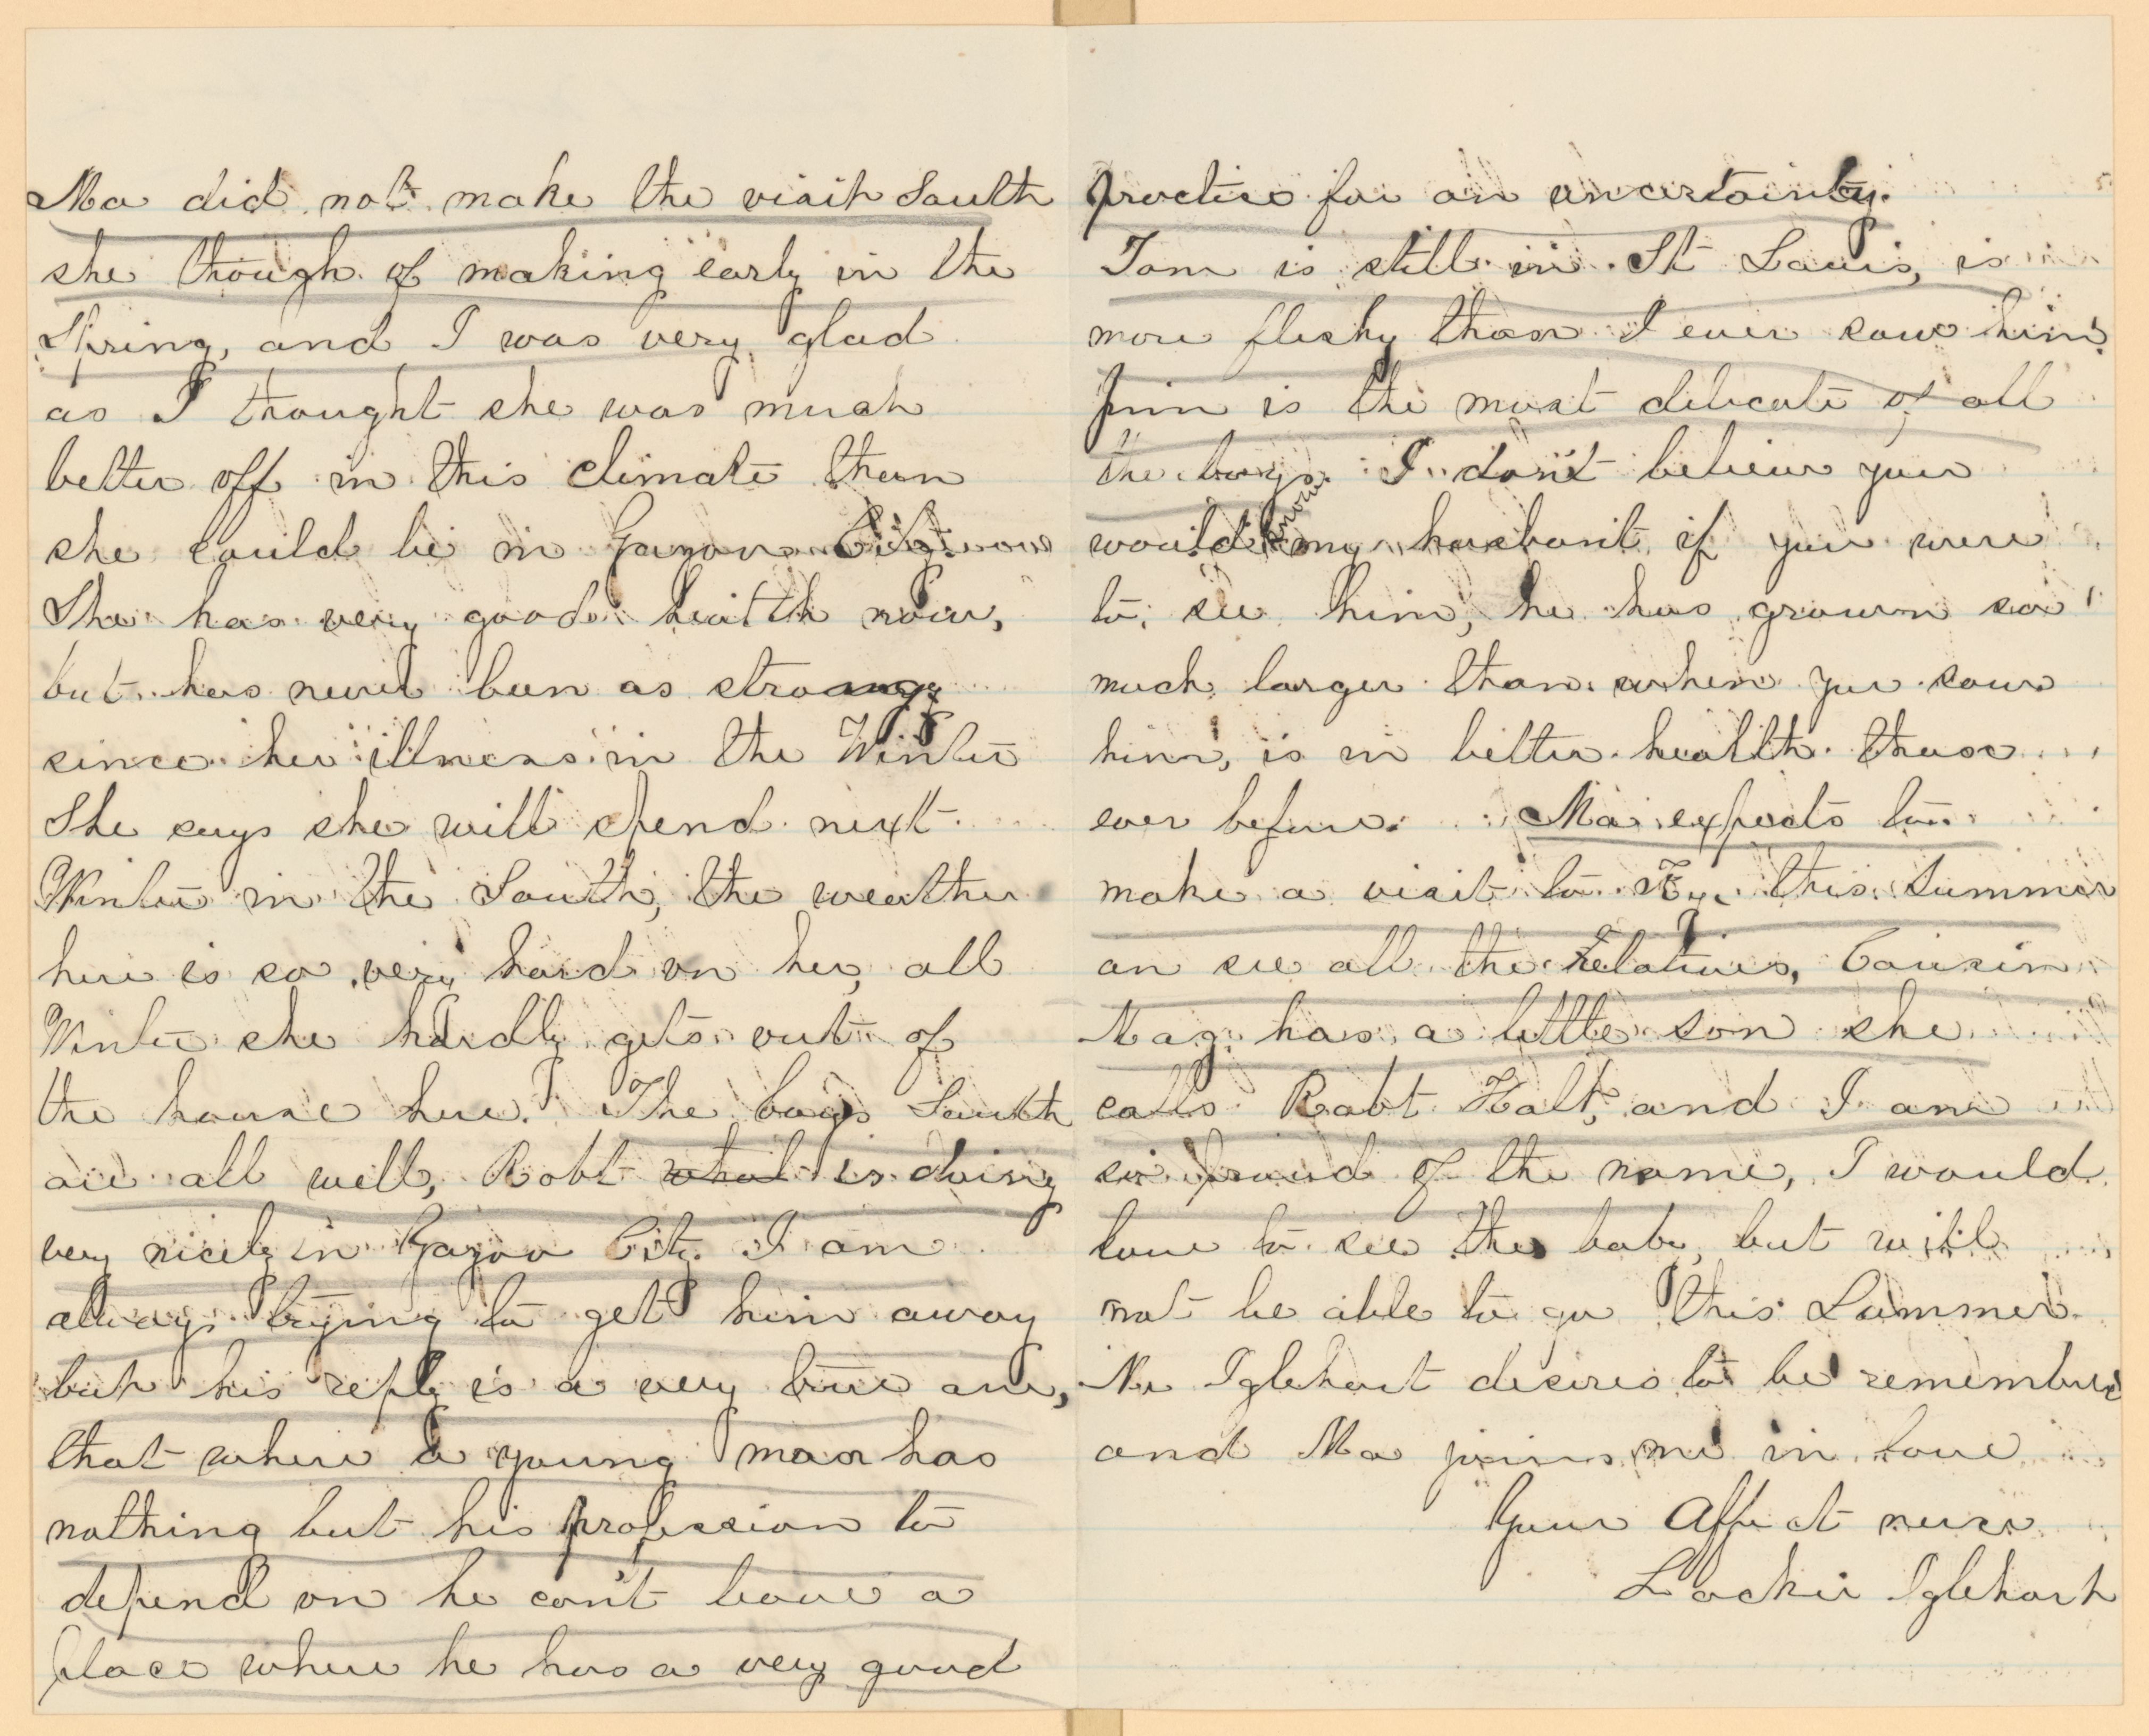 Ma did not make the visit South
she though of making early in the
Spring, and I was very glad
as I thought she was much
better off in this climate than
she could be in Yazoo City now
She has very good health now,
but has never been as strong
since her illness in the Winter
She says she will spend next
Winter in the South, the weather
here is so very hard on her, all
Winter she hardly gets out of
the house here. The boys South
are all well, Robt what is doing
very nicely in Yazoo City. I am
always trying to get him away
but his reply is a very true one,
that where a young man has
nothing but his profession to
depend on he can't leave a
place where he has a very good
practice for an uncertainty.
Tom is still in St Louis, is
more fleshy than I ever saw him.
Jim is the most delicate of all
the boys. I don't believe you
would know my husbant if you were
to see him, he has grown so
much larger than when you saw
him, is in better health than
ever before. Ma expects to
make a visit to Ky, this Summer
an see all the Relatives, Cousin
Mag has a little son she
calls Robt Holt, and I am
so proud of the name, I would
love to see the baby, but will
not be able to go this Summer.
Mr Iglehart desires to be remembered
and Ma joins me in love
Your Affect niece
Lockie Iglehart